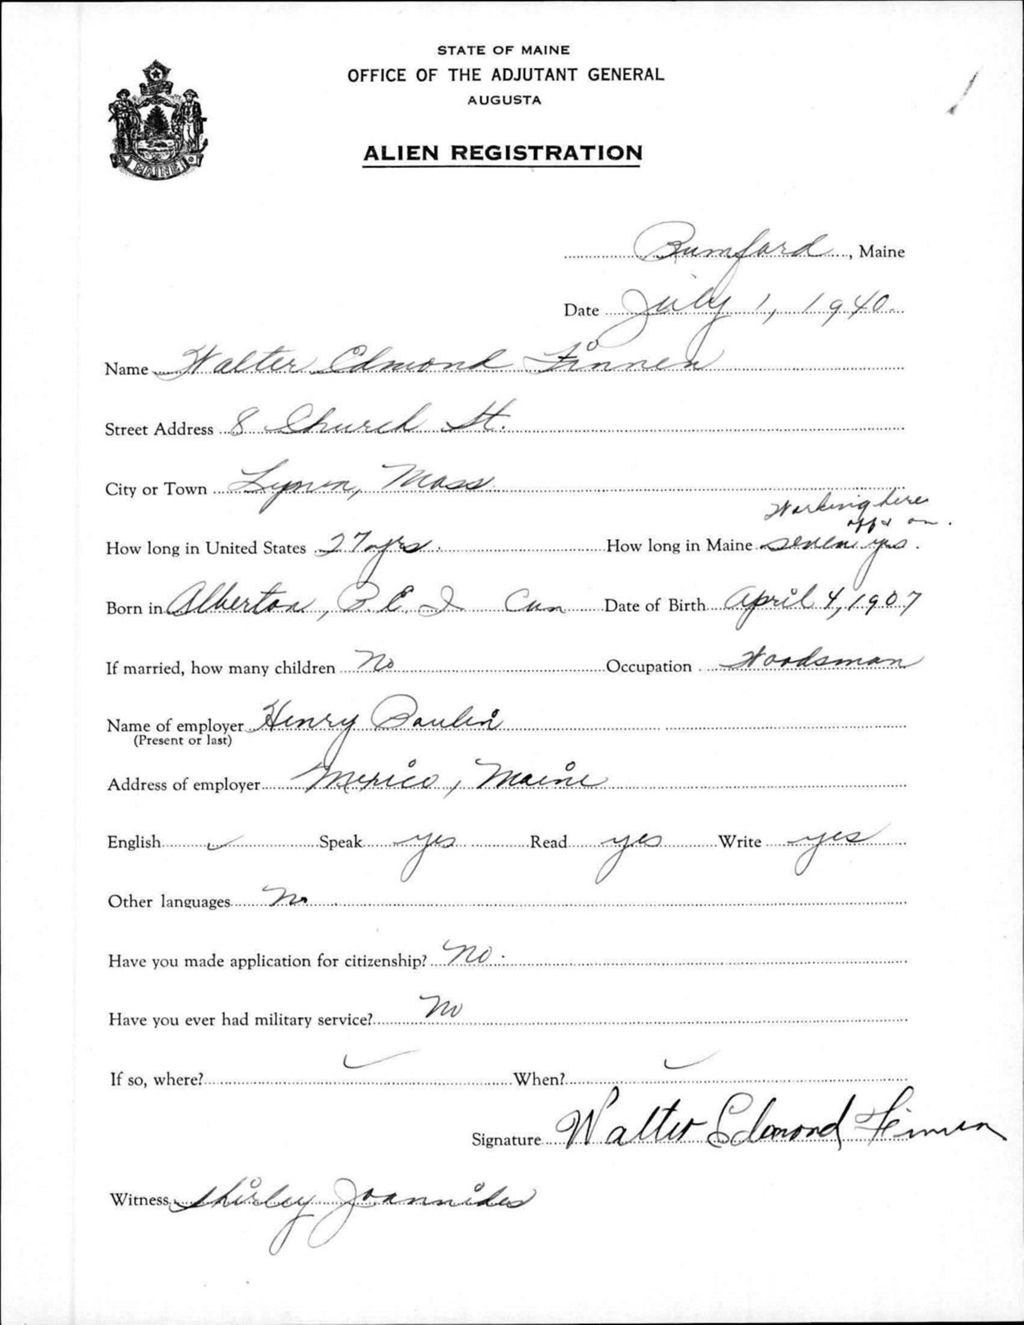 STATE OF MAINE
OFFICE OF THE ADJUTANT GENERAL
AUGUSTA
ALIEN REGISTRATION
MAINE
Rumford, Maine
Date July 1, 1940
Name Walter Edmond Finnen
Street Address 8 Church St.
City or Town Lynn, Mass
Working here
off & on.
How long in United States 27 yrs. How long in Maine seven yrs.
Born in Alberton, P.E.I Can Date of Birth April 4, 1907
If married, how many children No Occupation Woodsman
Name of employer Henry Paulin
(Present or last)
Address of employer Mexico, Maine
English ✓ Speak yes Read yes Write yes
Other languages No
Have you made application for citizenship? No.
Have you ever had military service? No
If so, where? ✓ When? ✓
Signature Walter Edmond Finnen
Witness Shirley Joannides